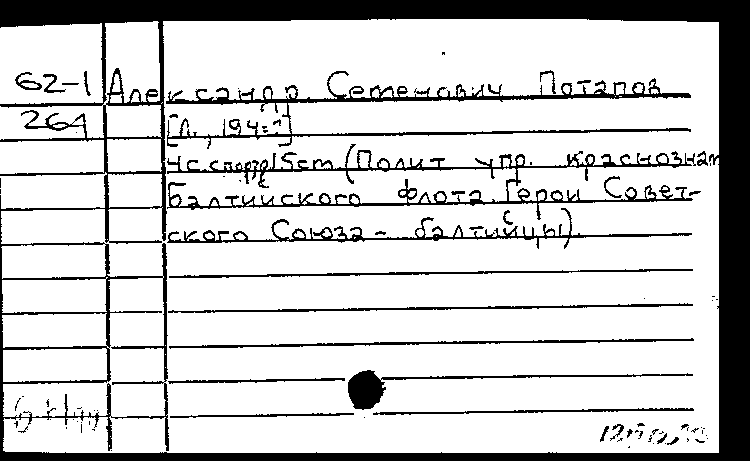 62-1 Александр Семенович Потапов
264 [Л., 194-?]
4с. с портр. 15cm. (Полит упр. краснознам
Балтийского флота. Герои Совет-
ского Союза - балтийцы).